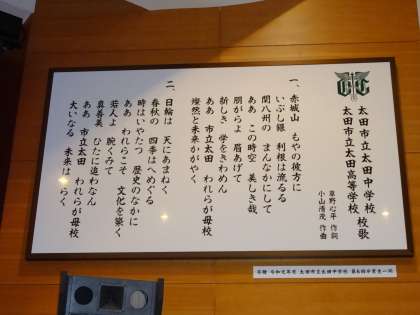 太田市立太田中学校 校歌
太田市立太田高等学校
草野心平 作詞
小山清茂 作曲
一、赤城山 もやの彼方に
いぶし銀 利根は流るる
関八州の まんなかにして
ああ この時空 美しき哉
朋がらよ 眉あげて
新しき 学をきわめん
ああ 市立太田 われらが母校
燦然と未来かがやく
二、日輪は 天にあまねく
春秋の 四季はへめぐる
時はいやたつ 歴史のなかに
ああ われらこそ 文化を築く
若人よ 腕くみて
真善美 ひたに追わなん
ああ 市立太田 われらが母校
大いなる 未来はひらく
寄贈 令和元年度 太田市立太田中学校 第6回卒業生一同